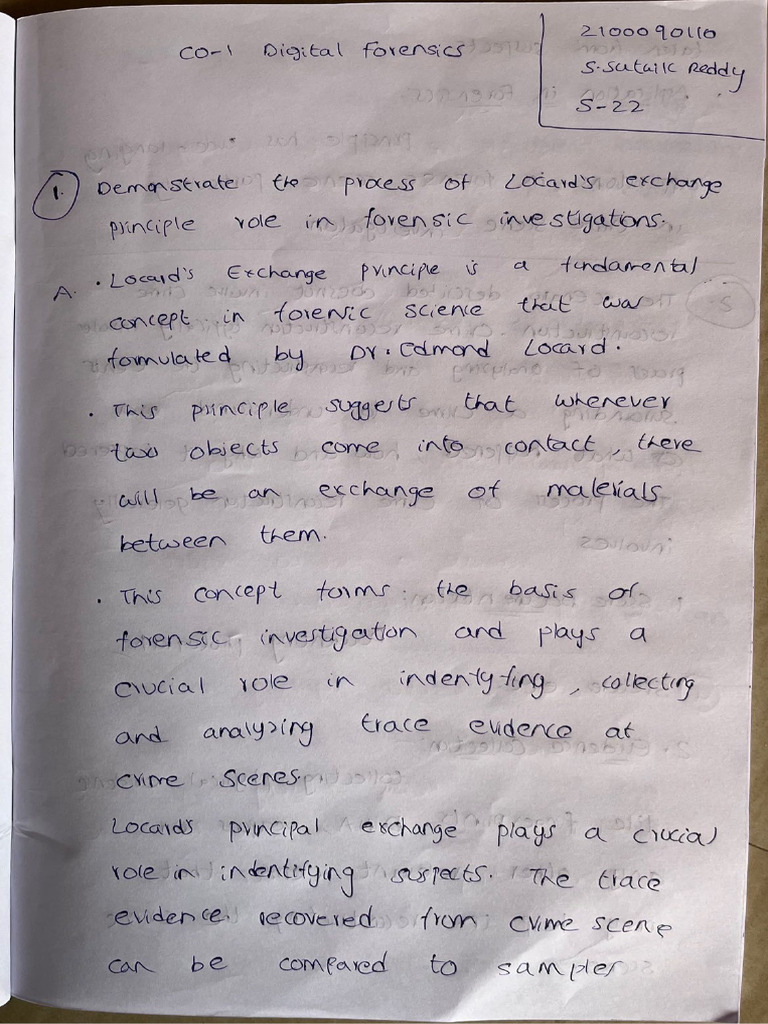 CO-1 Digital Forensics
2100090110
S. Sutaik Reddy
S-22
1. Demonstrate the process of Locard's exchange
principle role in forensic investigations.
A. • Locard's Exchange principle is a fundamental
concept in forensic science that was
formulated by Dr. Edmond Locard.
• This principle suggests that whenever
two objects come into contact, there
will be an exchange of materials
between them.
• This concept forms the basis of
forensic investigation and plays a
crucial role in indentyfing, collecting
and analyzing trace evidence at
crime scenes.
Locards principal exchange plays a crucial
role in indentifying suspects. The trace
evidence recovered from crime scene
can be compared to samples